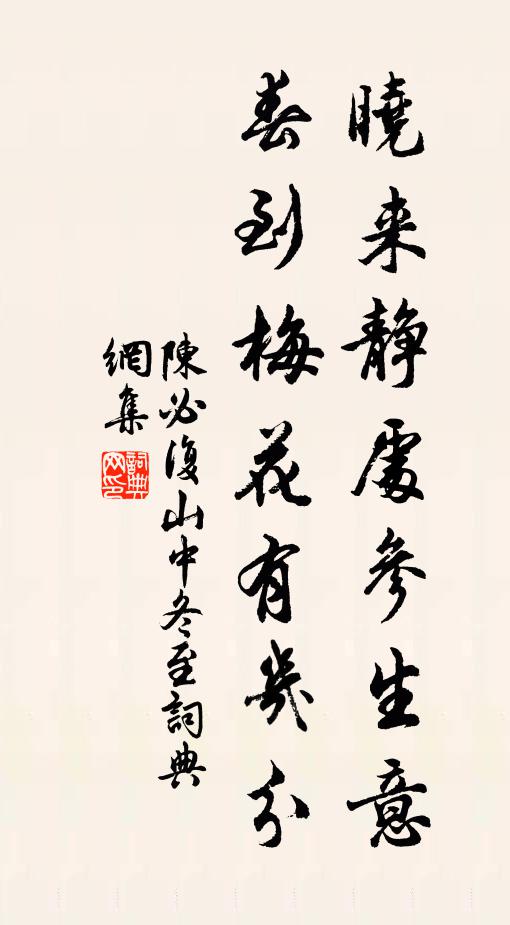 曉来静處參生意
春到梅花有幾分
陳必復山中冬至詞典
網集
詞典
网印